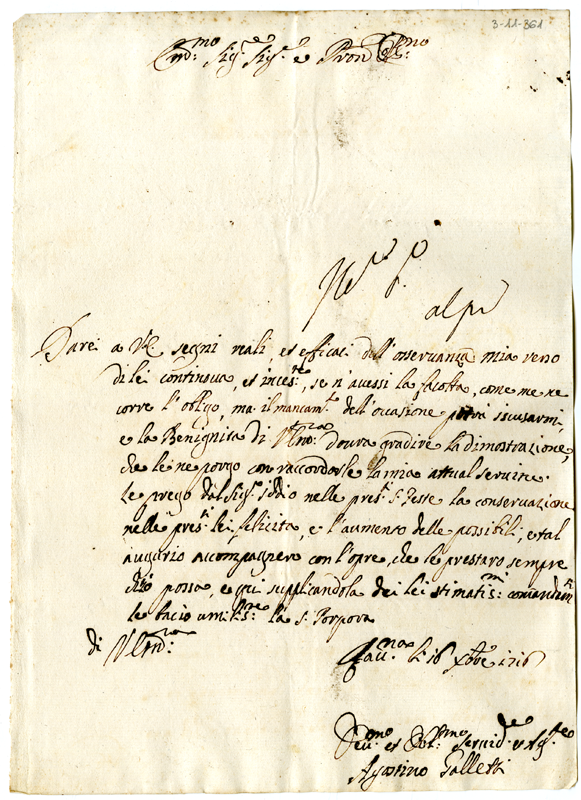 3-11-361
Em.mo Sig.e Sig.e e Pron Col.mo
Darei a VE segni reali, et efficaci dell'osservanza mia verso
di lei continova, et inces.te, se n'avessi la facolta, come me ne
corre l'obligo, ma il mancam.to dell'occasione potrà iscusarmi,
e la Benignita di V Em.za dovra gradire la dimostrazione,
che le ne porgo con raccordarle la mia attual servitu.
Le prego dal Sig.e Iddio nelle pres.ti S. Feste la conservazione
nelle pres.ti lei felicita, e l'aumento delle possibili, e tal
augurio accompagnero con l'opre, che le prestaro sempre
ch'io possa, e qui supplicandola dei lei stimatis.mi comandam.ti
le facio umilis.mo la S. Porpora
di V Em.za
li 16 Xbre 1716
Agostino Galletti